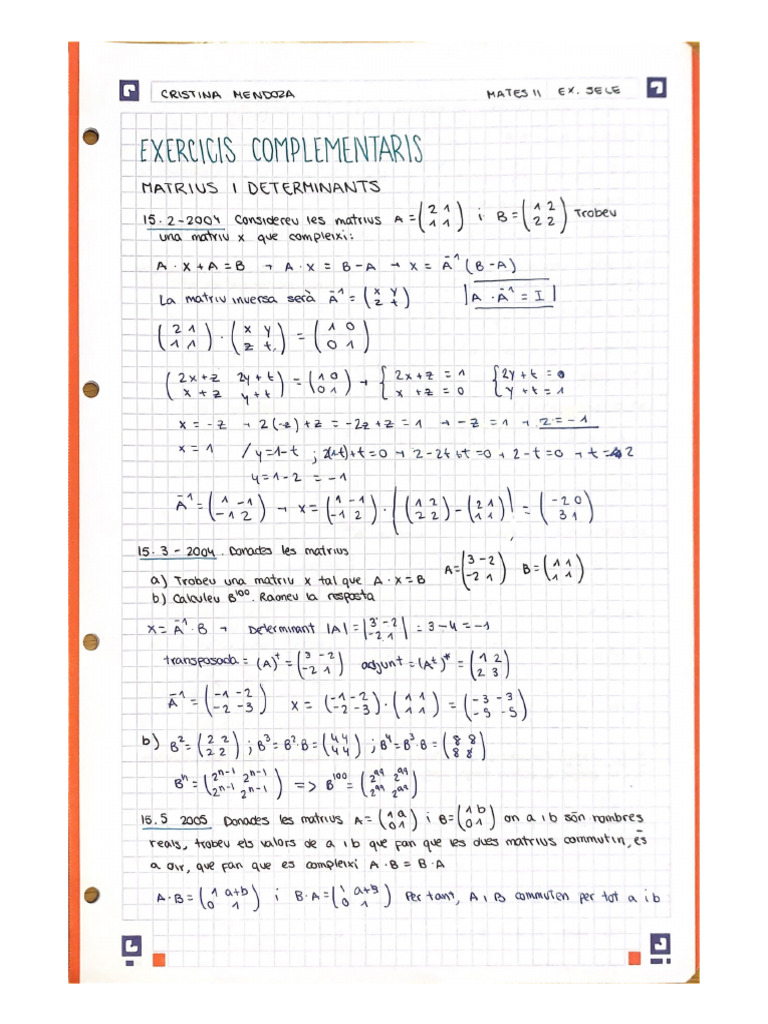 CRISTINA MENDOZA MATES II EX. SELE
EXERCICIS COMPLEMENTARIS
MATRIUS I DETERMINANTS
15.2-2004 Considereu les matrius A = (2 1 / 1 1) i B = (1 2 / 2 2) Trobeu
una matriu x que compleixi:
A · X + A = B → A · X = B - A → X = A⁻¹ (B - A)
La matriu inversa serà A⁻¹ = (x y / z t) |A · A⁻¹ = I|
(2 1 / 1 1) · (x y / z t) = (1 0 / 0 1)
(2x+z 2y+t / x+z y+t) = (1 0 / 0 1) → {2x+z = 1 / x+z = 0 {2y+t = 0 / y+t = 1
x = -z → 2(-z)+z = -2z+z = 1 → -z = 1 → z = -1
x = 1 / y = 1-t ; 2(1-t)+t = 0 → 2-2t+t = 0 → 2-t = 0 → t = 2
y = 1-2 = -1
A⁻¹ = (1 -1 / -1 2) → x = (1 -1 / -1 2) · ((1 2 / 2 2) - (2 1 / 1 1)) = (-2 0 / 3 1)
15.3-2004. Donades les matrius A = (3 -2 / -2 1) B = (1 1 / 1 1)
a) Trobeu una matriu x tal que A · X = B
b) Calculeu B¹⁰⁰. Raoneu la resposta
X = A⁻¹ · B → Determinant |A| = |3 -2 / -2 1| = 3 - 4 = -1
transposada = (A)ᵗ = (3 -2 / -2 1) adjunt = (Aᵗ)* = (1 2 / 2 3)
A⁻¹ = (-1 -2 / -2 -3) X = (-1 -2 / -2 -3) · (1 1 / 1 1) = (-3 -3 / -5 -5)
b) B² = (2 2 / 2 2) ; B³ = B² · B = (4 4 / 4 4) ; B⁴ = B³ · B = (8 8 / 8 8)
Bⁿ = (2ⁿ⁻¹ 2ⁿ⁻¹ / 2ⁿ⁻¹ 2ⁿ⁻¹) => B¹⁰⁰ = (2⁹⁹ 2⁹⁹ / 2⁹⁹ 2⁹⁹)
15.5 2005 Donades les matrius A = (1 a / 0 1) i B = (1 b / 0 1) on a i b són nombres
reals, trobeu els valors de a i b que fan que les dues matrius commutin, és
a dir, que fan que es compleixi A · B = B · A
A · B = (1 a+b / 0 1) i B · A = (1 a+b / 0 1) Per tant, A i B commuten per tot a i b